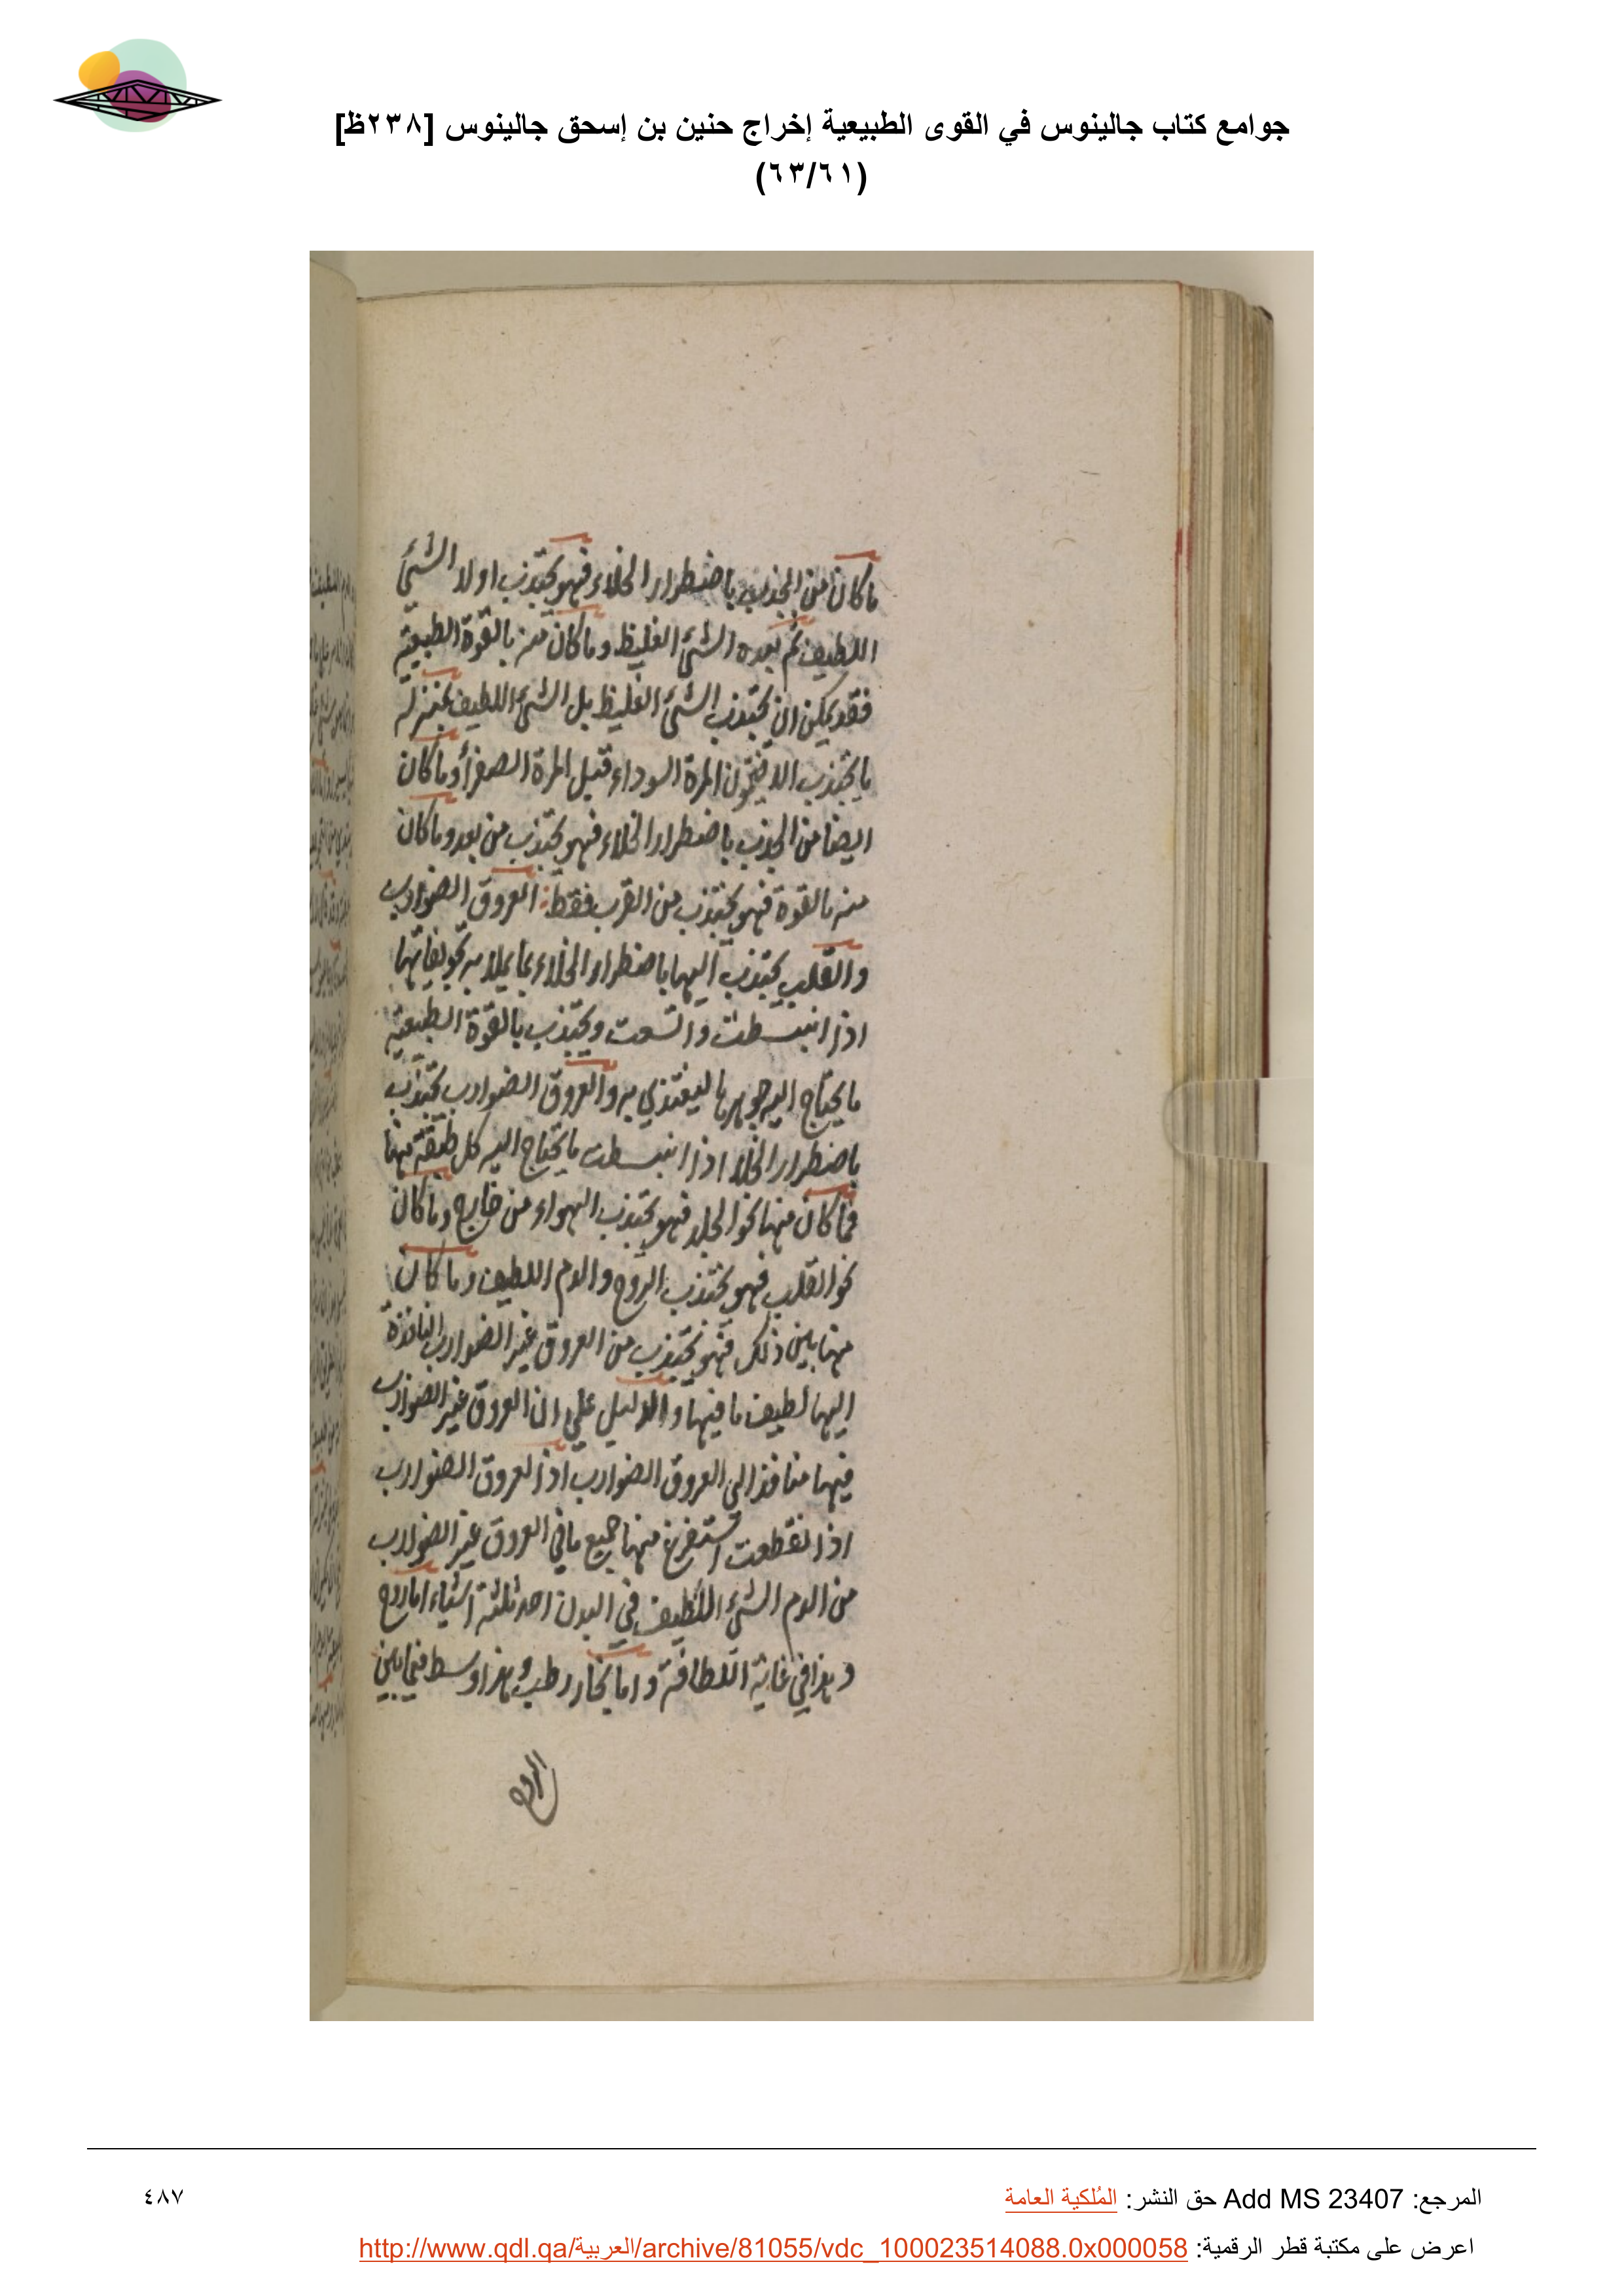 جوامع كتاب جالينوس في القوى الطبيعية إخراج حنين بن إسحق جالينوس [٢٣٨ظ]
(٦٣/٦١)
ما كان من الجذب باضطرار الخلاء فهو يجتذب اولا الشئ
اللطيف ثم بعده الشئ الغليظ وما كان منه بالقوة الطبيعية
فقد يمكن ان يجتذب الشئ الغليظ بل الشئ اللطيف بمنزلة
ما يجتذب الافتيمون المرة السوداء قبل المرة الصفرا وما كان
ايضا من الجذب باضطرار الخلاء فهو يجتذب من بعد وما كان
منه بالقوة فهو يجتذب من القرب فقط العروق الضوارب
والقلب يجتذب اليها باضطرار الخلاء بما يملا به تجويفاتها
اذا انبسطت واتسعت ويجتذب بالقوة الطبيعية
ما يحتاج اليه جوهرها ليغتذي به والعروق الضوارب تجتذب
باضطرار الخلا اذا انبسطت ما يحتاج اليه كل طبقة منها
فما كان منها نحو الجلد فهو يجتذب الهواء من خارج وما كان
نحو القلب فهو يجتذب الروح والدم اللطيف وما كان
منها بين ذلك فهو يجتذب من العروق غير الضوارب النافذة
اليها لطيف ما فيها والدليل على ان العروق غير الضوارب
فيها منافذ الى العروق الضوارب اذ العروق الضوارب
اذا انقطعت استفرغ منها جميع ما في العروق غير الضوارب
من الدم الشئ اللطيف في البدن احد ثلثة اشياء اما روح
وهذا في غاية اللطافة واما بخار رطب وهذا وسط فيما بين
الروح
المرجع: Add MS 23407 حق النشر: المُلكية العامة
٤٨٧
اعرض على مكتبة قطر الرقمية: http://www.qdl.qa/العربية/archive/81055/vdc_100023514088.0x000058